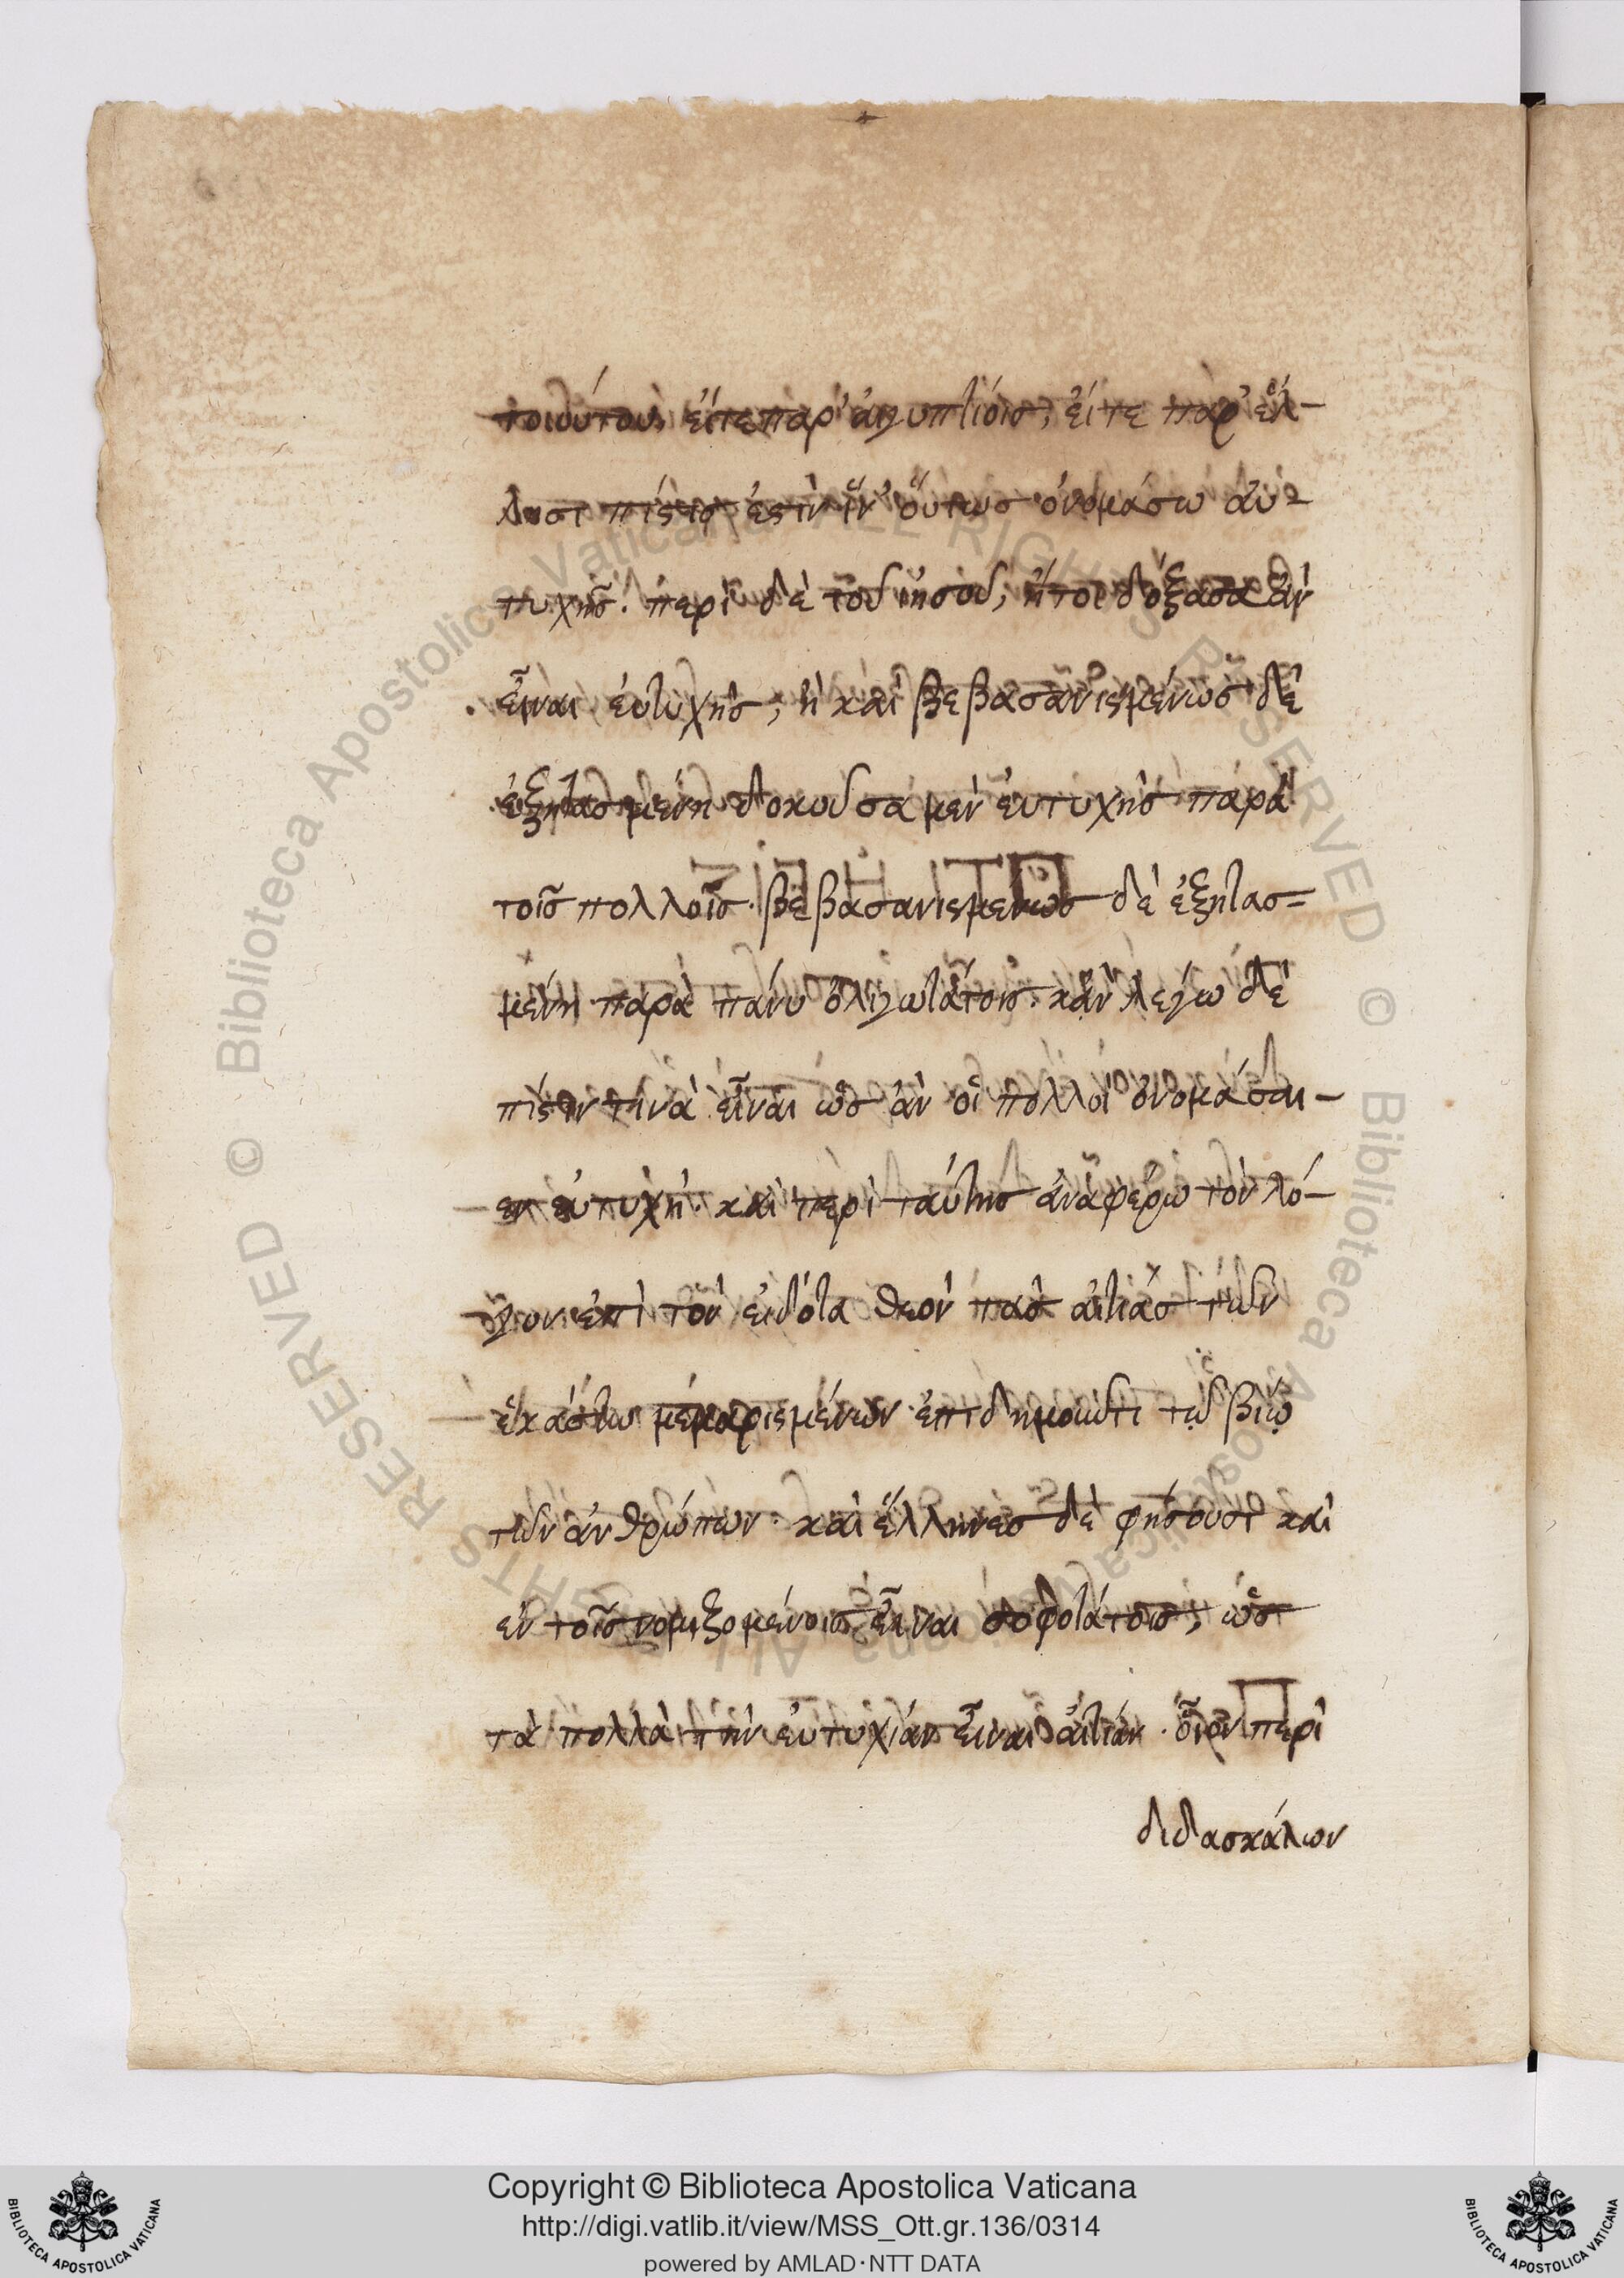 τοιούτου, εἴτε παρ' αἰγυπτίοις, εἴτε παρ' ἕλ-
λησι πίστις ἐστὶν ἵν' οὕτως ὀνομάσω ἀυ-
τυχής. περὶ δὲ τοῦ ἰησοῦ, ἤτοι δόξασα ἂν
εἶναι ἐυτυχὴς, ἢ καὶ βεβασανισμένως δὲ
ἐξητασμένη δοκοῦσα μὲν ἐυτυχὴς παρὰ
τοῖς πολλοῖς. βεβασανισμενως δὲ ἐξητασ=
μένη παρὰ πάνυ ὀλιγωτάτοις. κἂν λεγω δὲ
πίστιν τινὰ εἶναι ὡς ἂν οἱ πολλοὶ ὀνομάσαι-
εν ἐυτυχῆ. καὶ περὶ ταύτης ἀναφέρω τὸν λό-
γον ἐπὶ τὸν εἰδότα θεὸν τὰς αἰτίας τῶν
ἑκάστω μεμερισμένων ἐπιδημοῦντι τῷ βίῳ
τῶν ἀνθρώπων. καὶ ἕλληνες δὲ φήσουσι καὶ
ἐν τοῖς νομιζομένοις εἶναι σοφοτάτοις, ὡς
τὰ πολλὰ τὴν ἐυτυχίαν εἶναι ἀιτίαν. οἷον περὶ
διδασκάλων
Copyright © Biblioteca Apostolica Vaticana
http://digi.vatlib.it/view/MSS_Ott.gr.136/0314
powered by AMLAD·NTT DATA